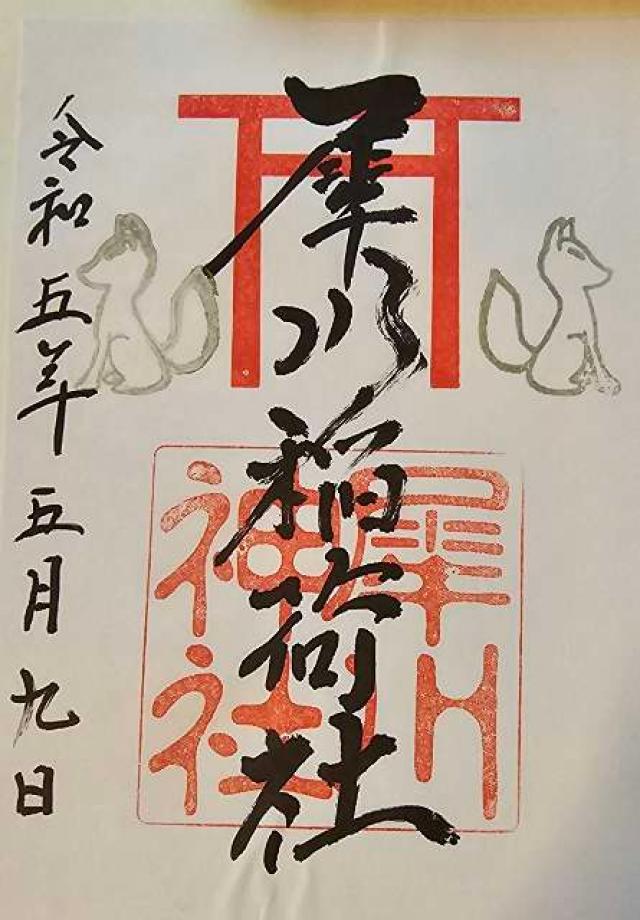 犀川稲荷社
犀川
神社
令和五年五月九日